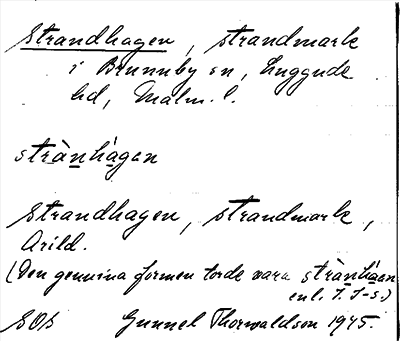 Strandhagen, strandmark
i Brunnby sn, Luggude
hd, Malm. l.
strànhàgen
Strandhagen, strandmark,
Arild.
(Den genuina formen torde vara strànhàan
enl. I. I-s.)
SOS Gunnel Thorwaldson 1975.